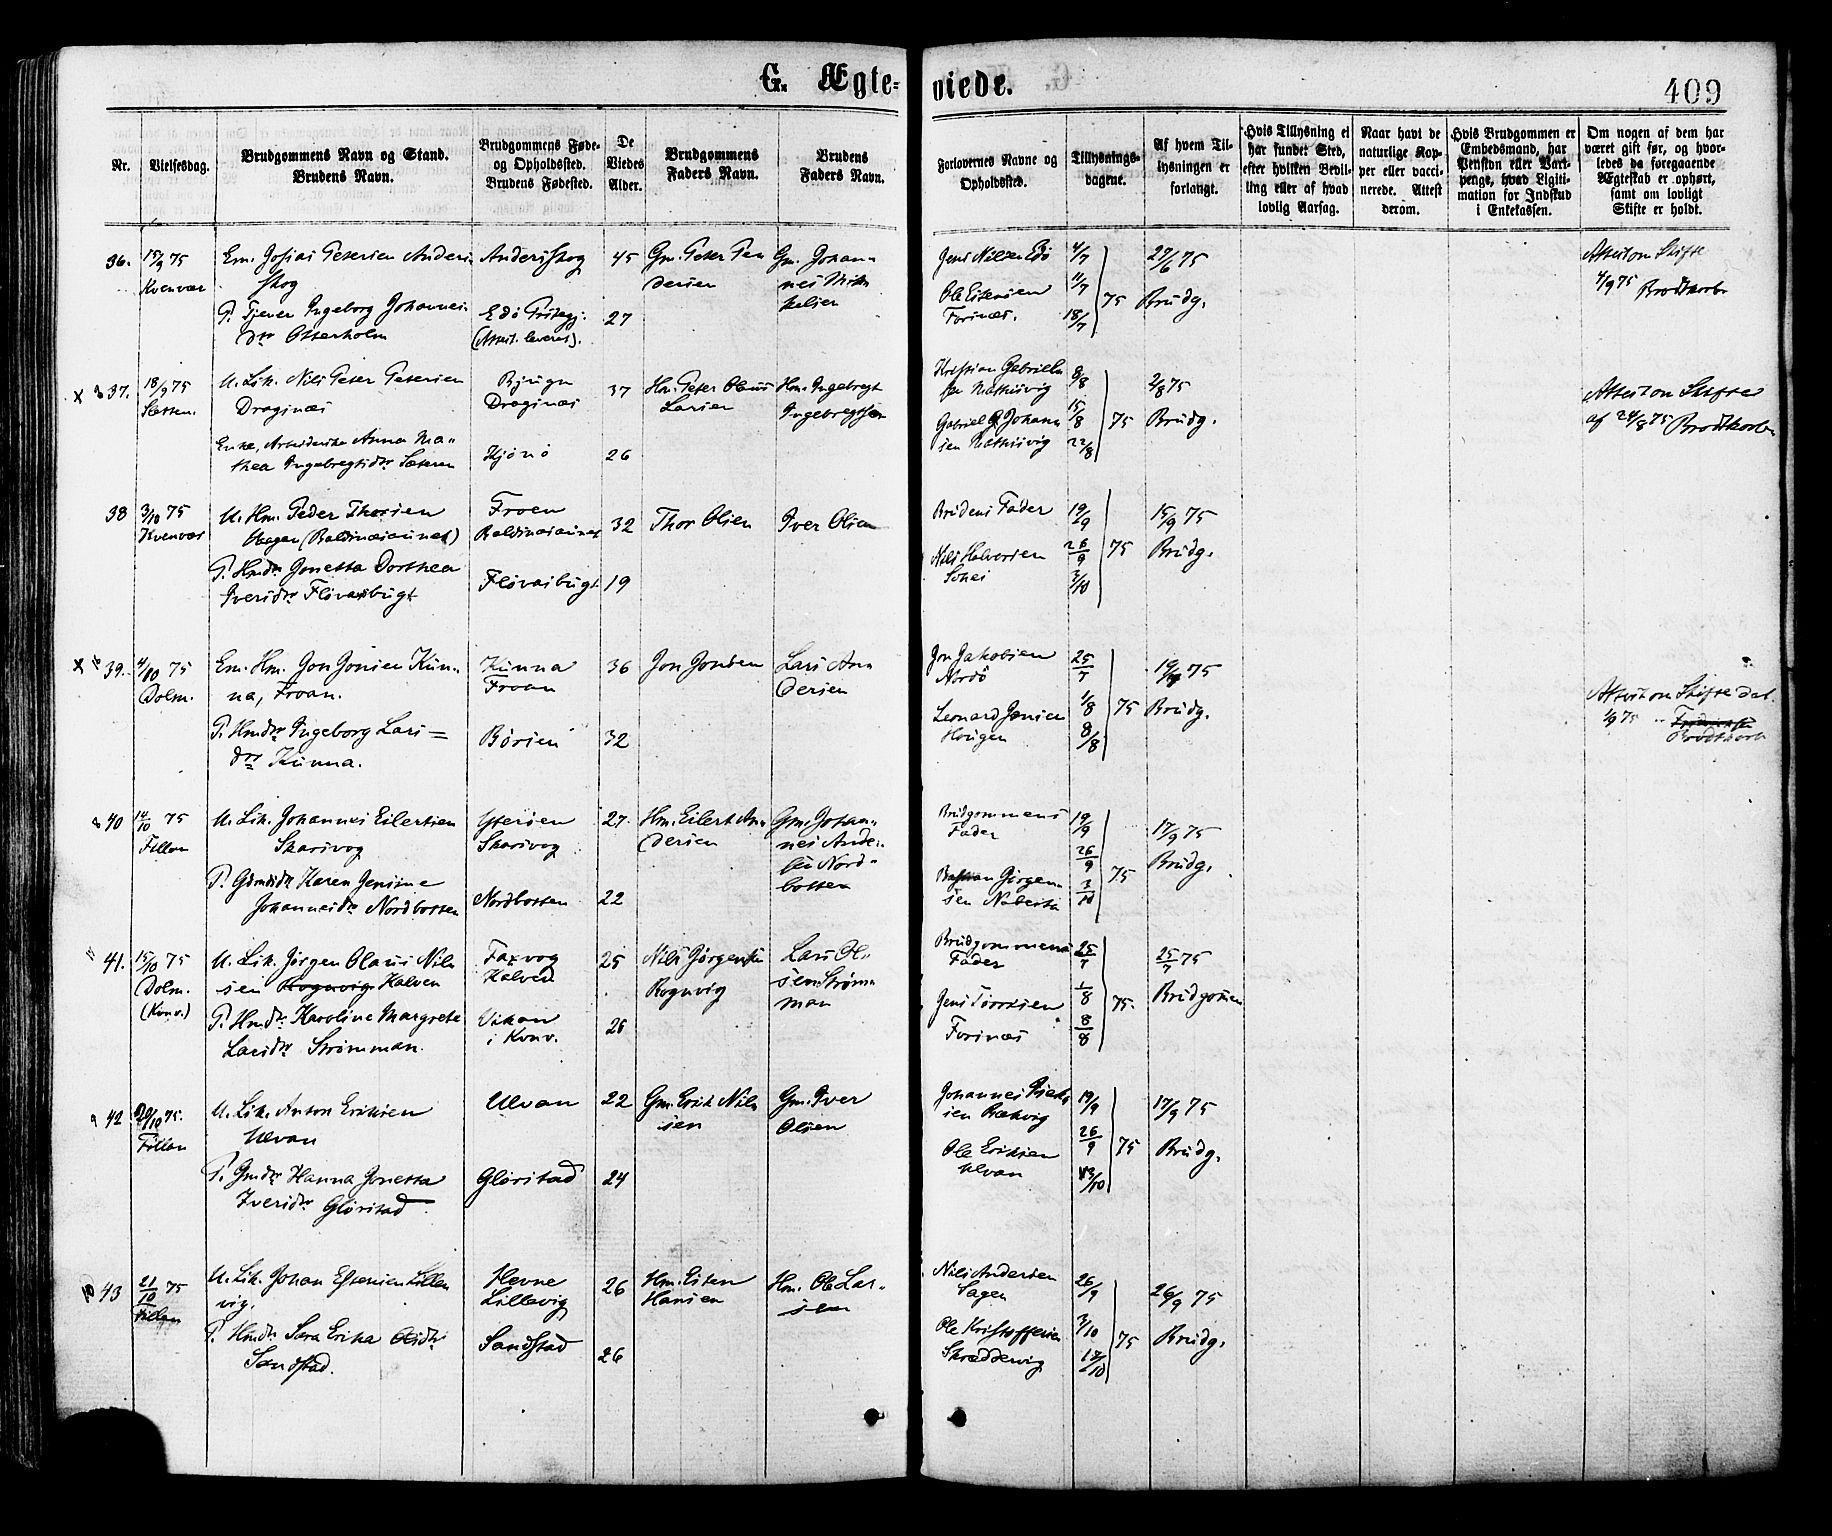 G. Ægte=
viede.
409
Nr.
Vielsesdag.
Brudgommens Navn og Stand.
Brudens Navn.
Brudgommens Føde-
og Opholdssted.
Brudens Fødested.
De
Viedes
Alder.
Brudgommens
Faders Navn.
Brudens
Faders Navn.
Forlovernes Navne og
Opholdssted.
Tillysnings-
dagene.
Af hvem Til-
lysningen er
forlangt.
Hvis Tillysning ei
har fundet Sted,
efter hvilken Bevil-
ling eller af hvad
lovlig Aarsag.
Naar havt de
naturlige Kop-
per eller vacci-
nerede. Attest
derom.
Hvis Brudgommen er
Embedsmand, har
Pension eller Vart-
penge, hvad Ligiti-
mation for Indskud
i Enkekassen.
Om nogen af dem har
været gift før, og hvor-
ledes da foregaaende
Ægteskab er ophørt,
samt om lovligt
Skifte er holdt.
36.
15/9 75
Kvenvær
Em. Josias Petersen Anders
skog
P. Tjener Ingeborg Johannes
dtr Otterholm
Andersskog
Edø Præstegj:
(Attest. leveret).
45
27
Gm. Peter Pe
dersen
Gm. Johan-
nes Mik
kelsen
Jens Nilsen Edø
Ole Estensen
Forsnæs.
4/7
11/7
18/7
75
27/6 75
Brudg.
Attest om Skifte
4/9 75 Brodtkorb
37.
18/9 75
Sletten.
U. Lik. Nils Peter Petersen
Dragsnæs
Enke, Arbeiderske Anna Ma-
thea Ingebregtsdtr Sæteren
Bjugn
Dragsnæs
Kjønø
37
26
Hm. Peter Olaus
Larsen
Hm. Ingebregt
Ingebregtsen
Kristian Gabriel
Gabriel Johann
sen
8/8
15/8
22/8
75
2/8 75
Brudg.
Attest om Skifte
af 24/8 75 Brodtkorb
38
3/10 75
Kvenvær
U. Hm. Peder Thorsen
Hagen (Baldsnæsaunet)
P. Hmdtr Jonetta Dorthea
Iversdtr Fløvasbugt
Froen
Baldsnæsaunet
Fløvasbugt
32
19
Thor Olsen
Iver Olsen
Brudens Fader
Nils Halvorsen
19/9
26/9
3/10
75
15/9 75
Brudg.
39.
4/10 75
Dolm.
Em. Hm. Jon Jonsen Kun-
na, Froan.
P. Hmdtr Ingeborg Lars=
dtr Kunna.
Kunna
Froan
Børsen
36
32
Jon Jonsen
Lars An
dersen
Jon Jakobsen
Nordø
Leonard Jensen
Hougen
25/7
1/8
8/8
75
19/7 75
Brudg.
Attest om Skifte dat.
1/9 75
Brodtkorb
40
14/10 75
Fillan
U. Lik. Johannes Eilertsen
Skarsvog
P. Gdmdsdtr Karen Jensine
Johannesdtr Nordbotten
Ytterøen
Skarsvog
Nordbotten
27
22
Hm. Eilert An-
dersen
Gm. Johan-
nes Ander-
sen Nord-
botten
Brudgommens
Fader
Bastian Jørgen-
sen
19/9
26/9
3/10
75
17/9 75
Brudg.
41.
15/10 75
Dolm.
(Kvnv.)
U. Lik. Jørgen Olaus Nil-
sen Rognvig Kalven
P. Hmdtr Karoline Margrete
Larsdtr Strømman.
Faxvog
Kalven
Vikan
i Kvnv.
25
26
Nils Jørgensen
Rognvig
Lars Ol-
sen Strøm-
man
Brudgommens
Fader
Jens Torrisen
Forsnæs
25/7
1/8
8/8
75.
25/7 75
Brudgommen
42
20/10 75.
Fillan
U. Lik. Anton Eriksen
Ulvan
P. Gmdtr Hanna Jonetta
Iversdtr Glørstad
Ulvan
Glørstad
22
24
Gm. Erik Nil-
sen
Gm. Iver
Olsen
Johannes
Rækvig
Ole Eriksen
Ulvan
19/9
26/9
3/10
75
17/9 75
Brudg.
43
21/10 75
Fillan
U. Lik. Johan Estensen Lille
vig.
P. Hmdtr Sara Erika Olsdtr
Sandstad.
Hevne
Lillevig
Sandstad
26
26
Hm. Esten
Hansen
Hm. Ole Lar-
sen
Nils Andersen
Sagen
Ole Kristoffersen
Skreddervig
26/9
3/10
17/10
75
26/9 75
Brudg.